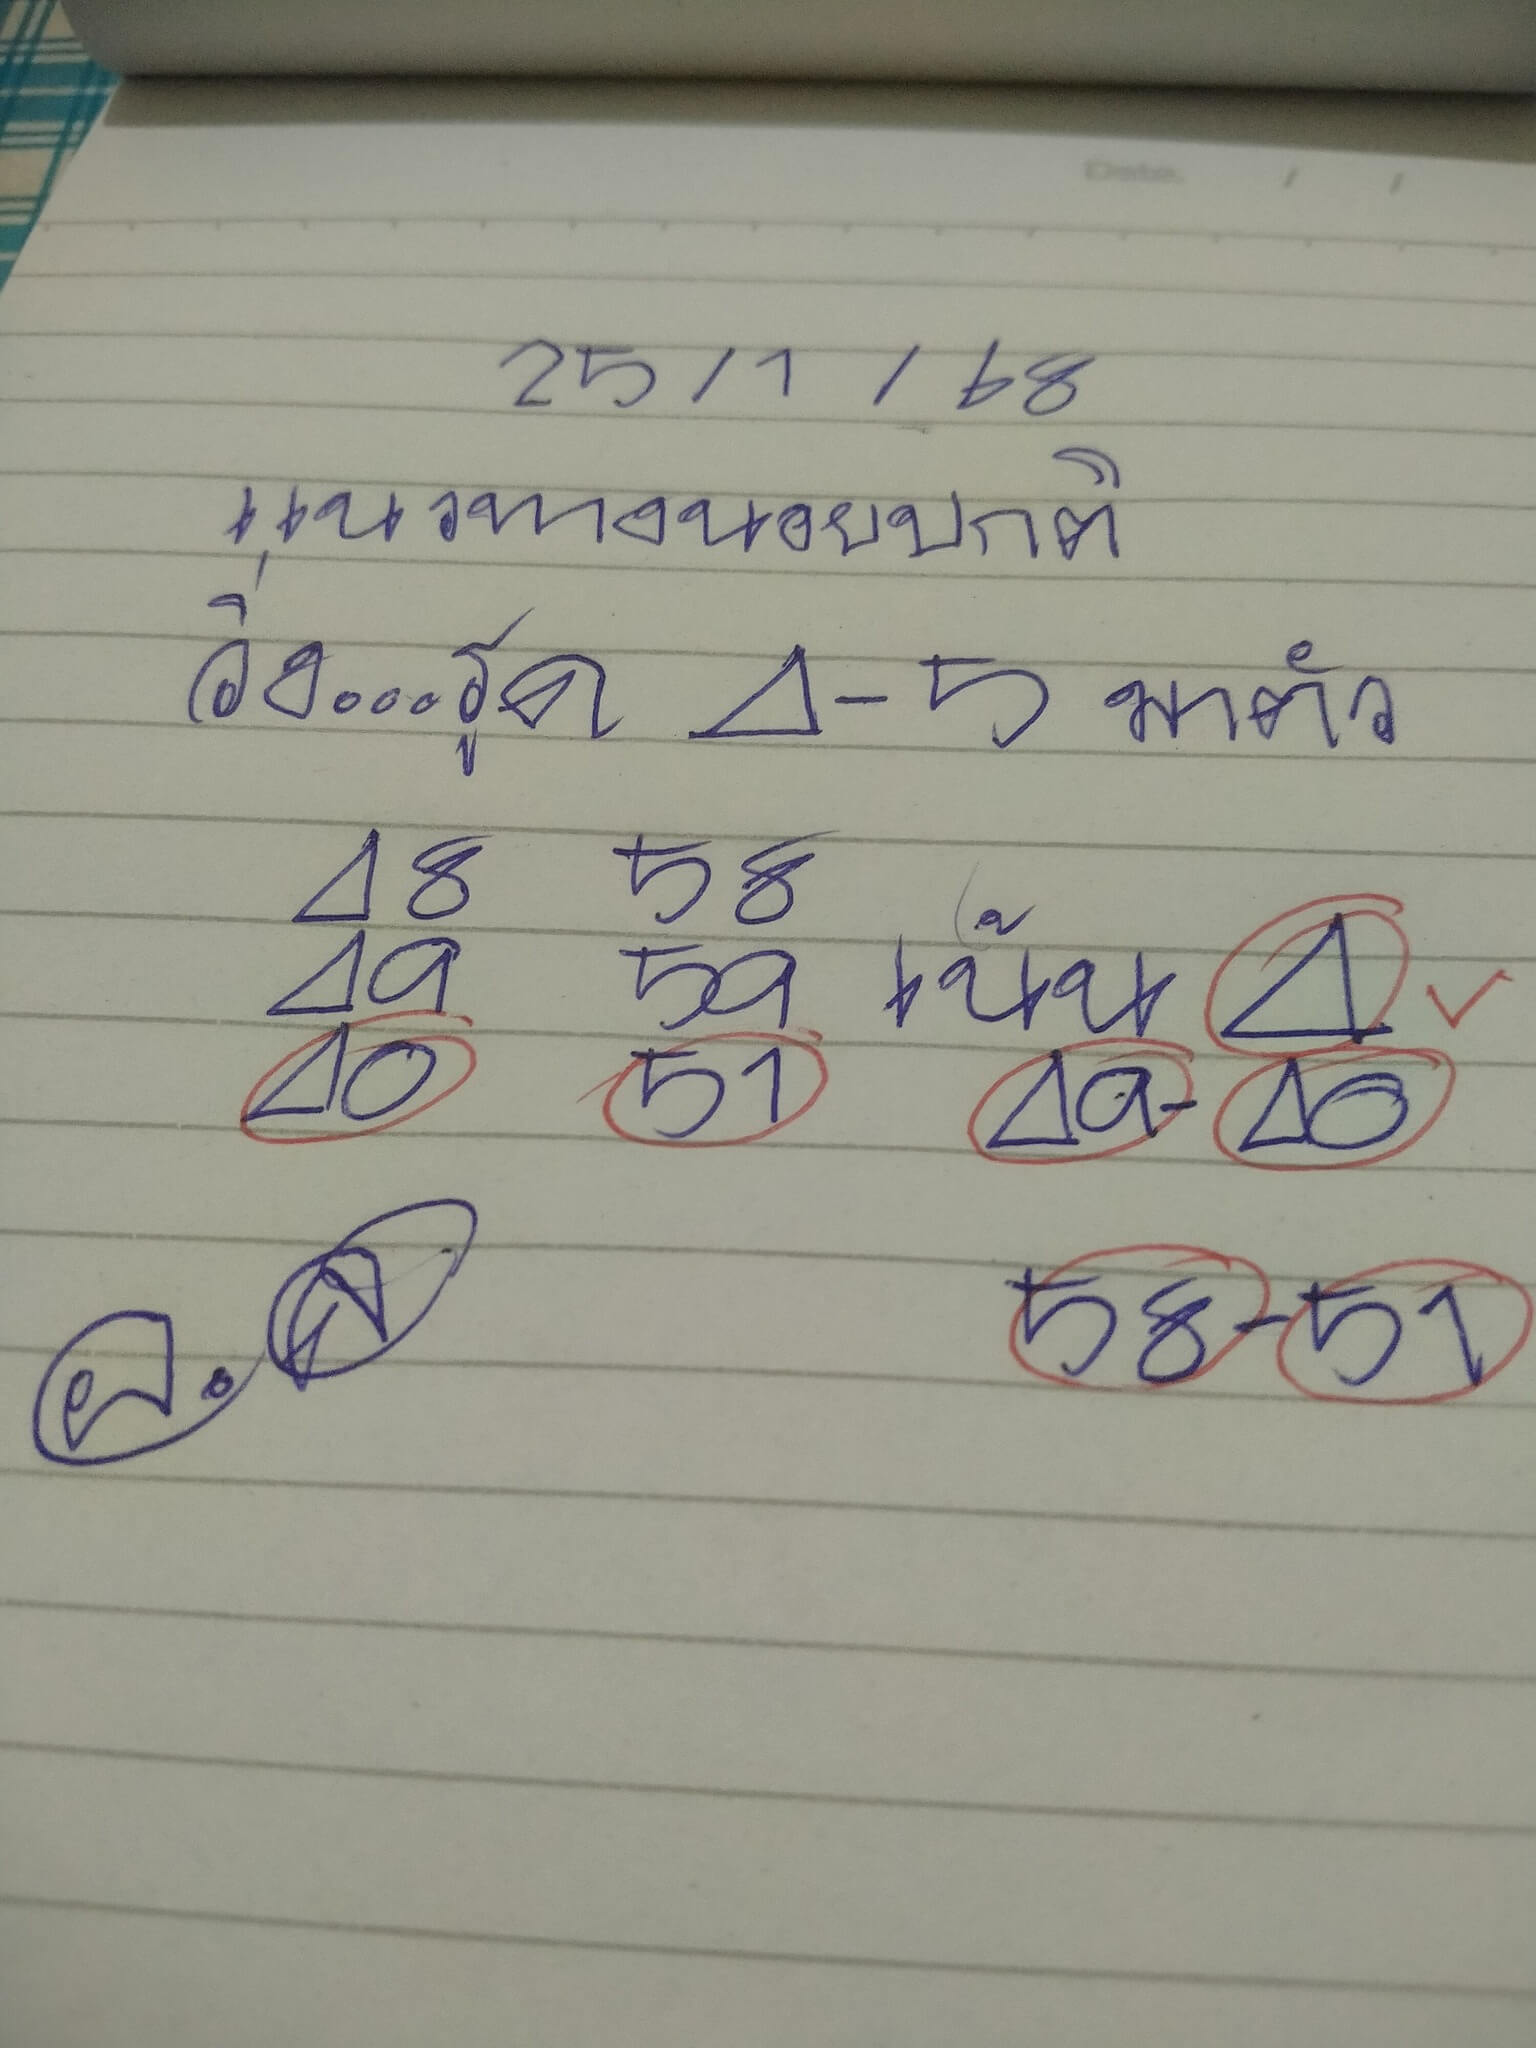 Date. / /
25 / 1 / 68
แนวทางนอยปกติ
วิ่ง...รูด 4-5 มาตัว
48 58
49 59 เน้น 4 ✓
40 51 49-40
58-51